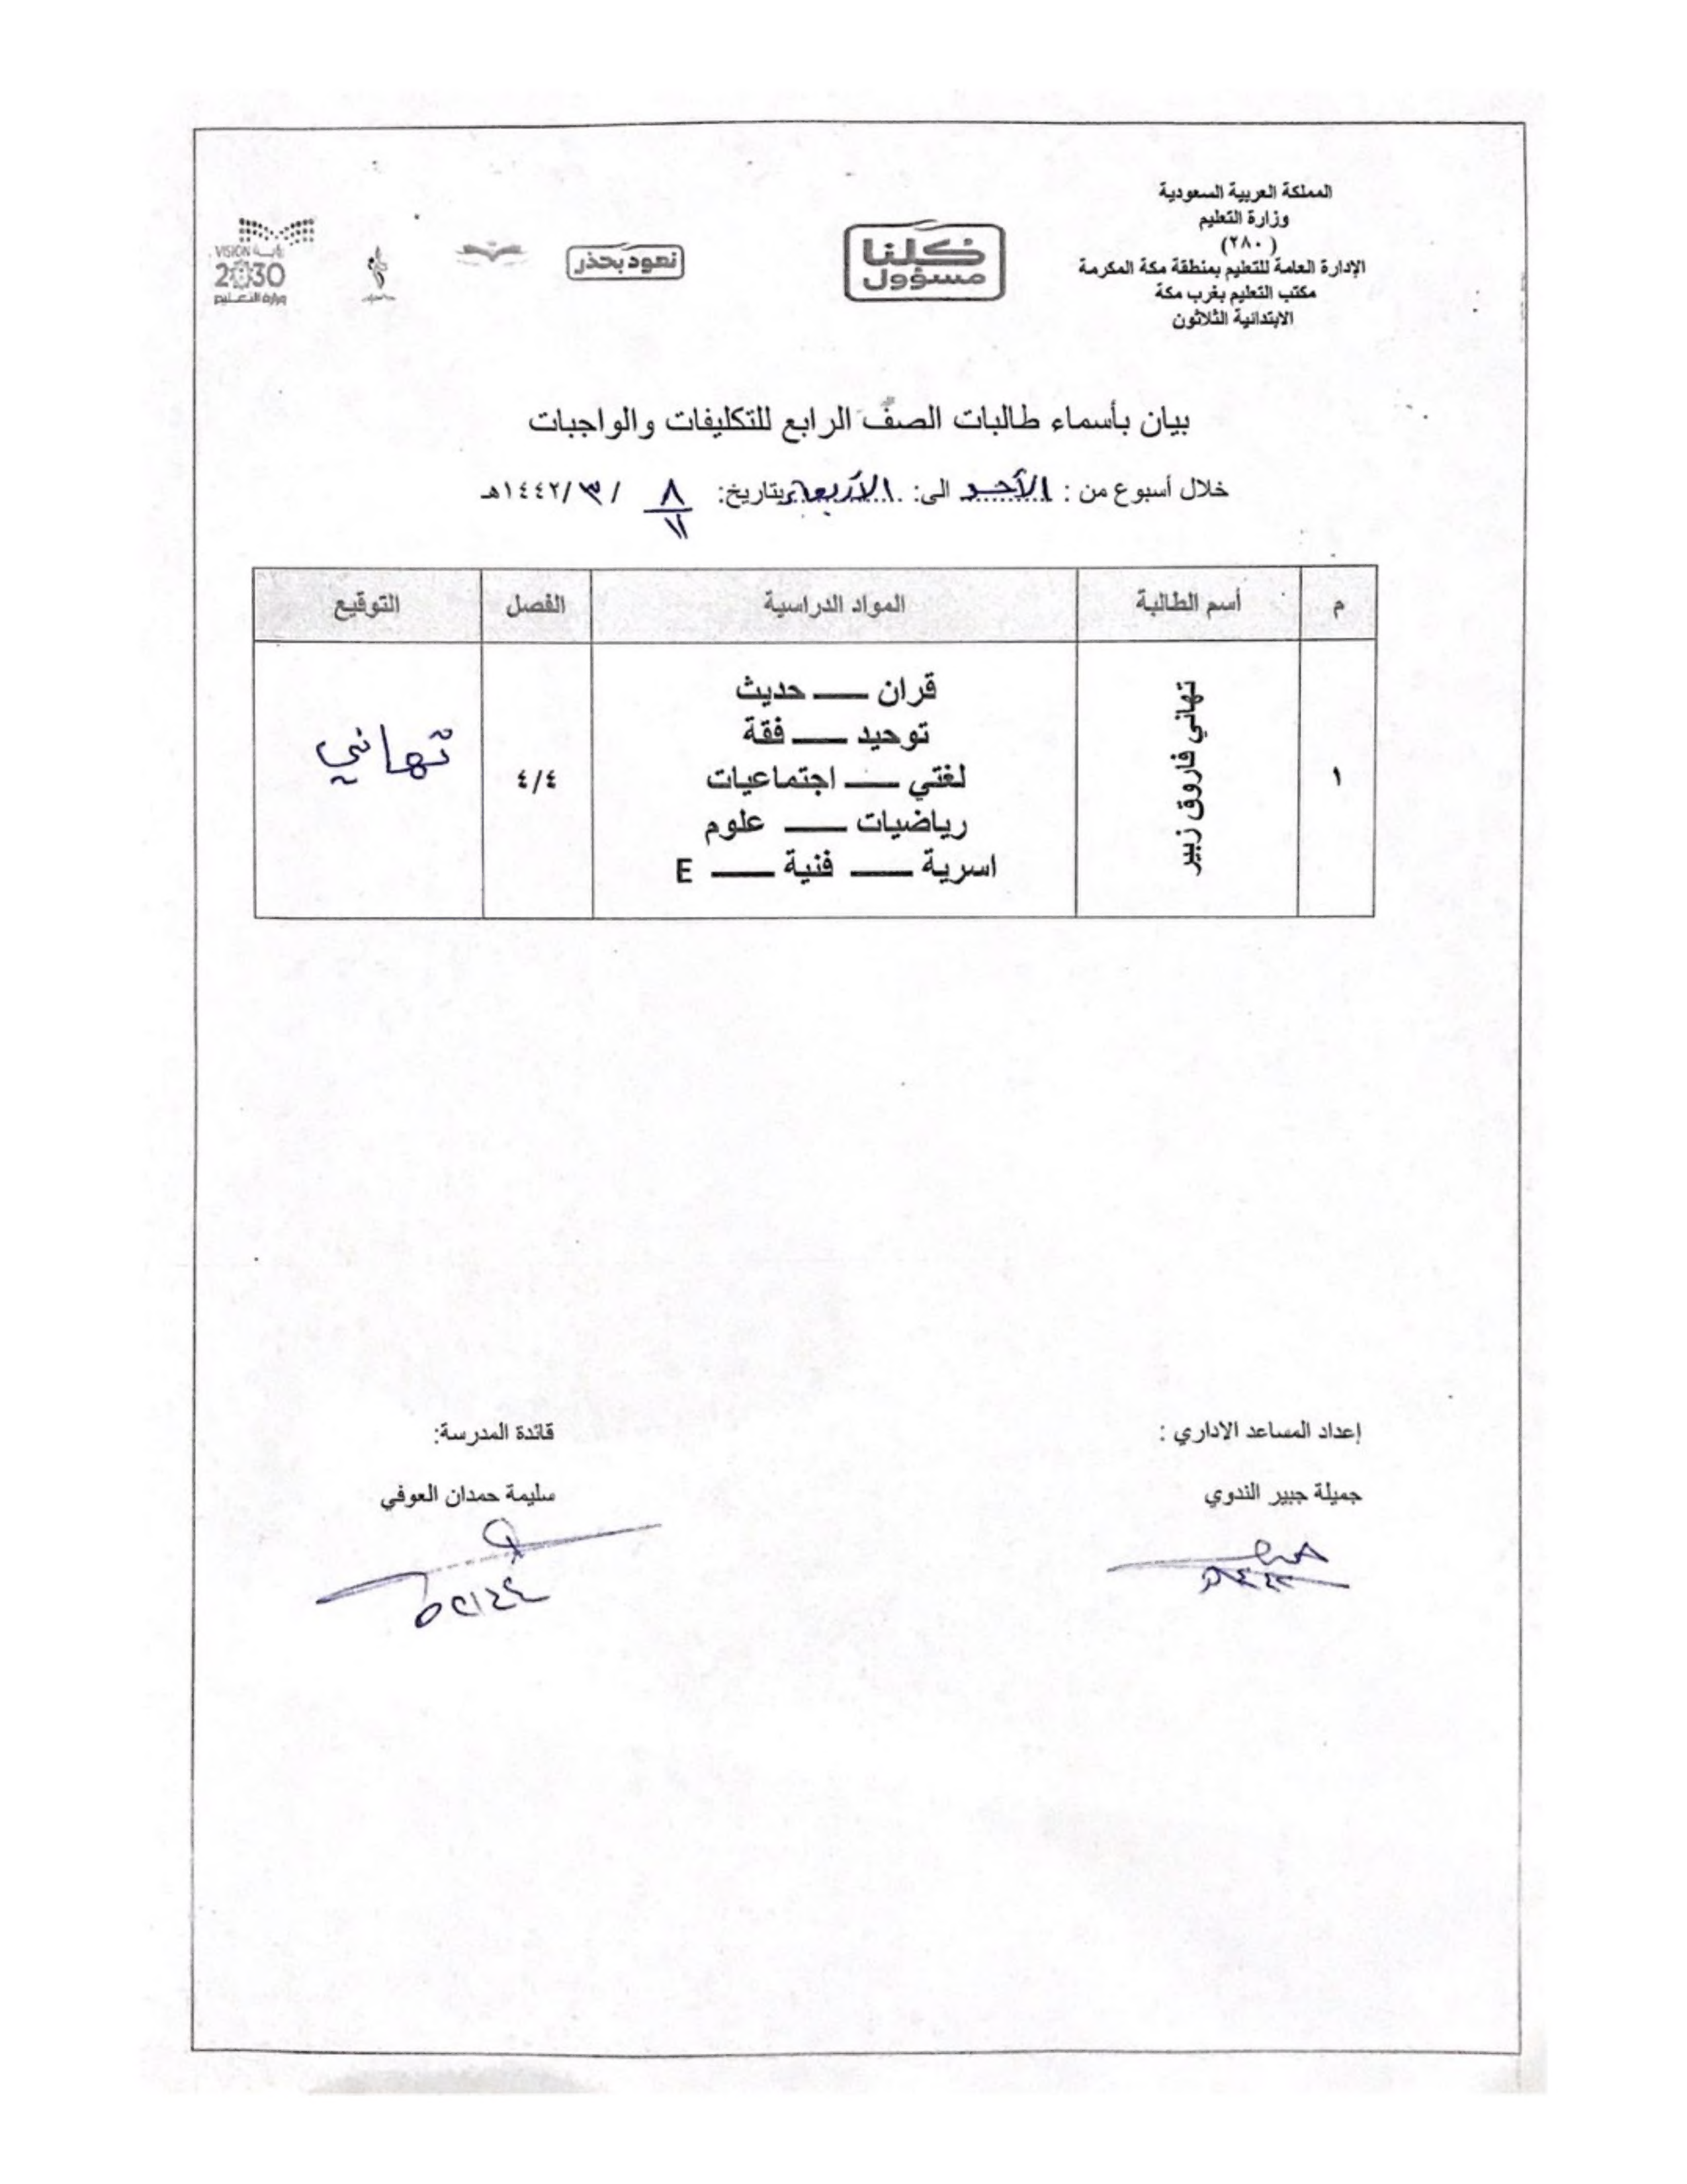 المملكة العربية السعودية
وزارة التعليم
(٢٨٠)
الإدارة العامة للتعليم بمنطقة مكة المكرمة
مكتب التعليم بغرب مكة
الابتدائية الثلاثون
كلنا مسؤول
نعود بحذر
VISION رؤية
2030
وزارة التعليم
بيان بأسماء طالبات الصف الرابع للتكليفات والواجبات
خلال أسبوع من : الأحد الى: الأربعاء بتاريخ: ٨/١١ / ٣ /١٤٤٢هـ
م أسم الطالبة المواد الدراسية الفصل التوقيع
١ تهاني فاروق زبير
قران — حديث
توحيد — فقة
لغتي — اجتماعيات
رياضيات — علوم
اسرية — فنية — E
٤/٤
تهاني
إعداد المساعد الاداري : قائدة المدرسة:
جميلة جبير الندوي سليمة حمدان العوفي